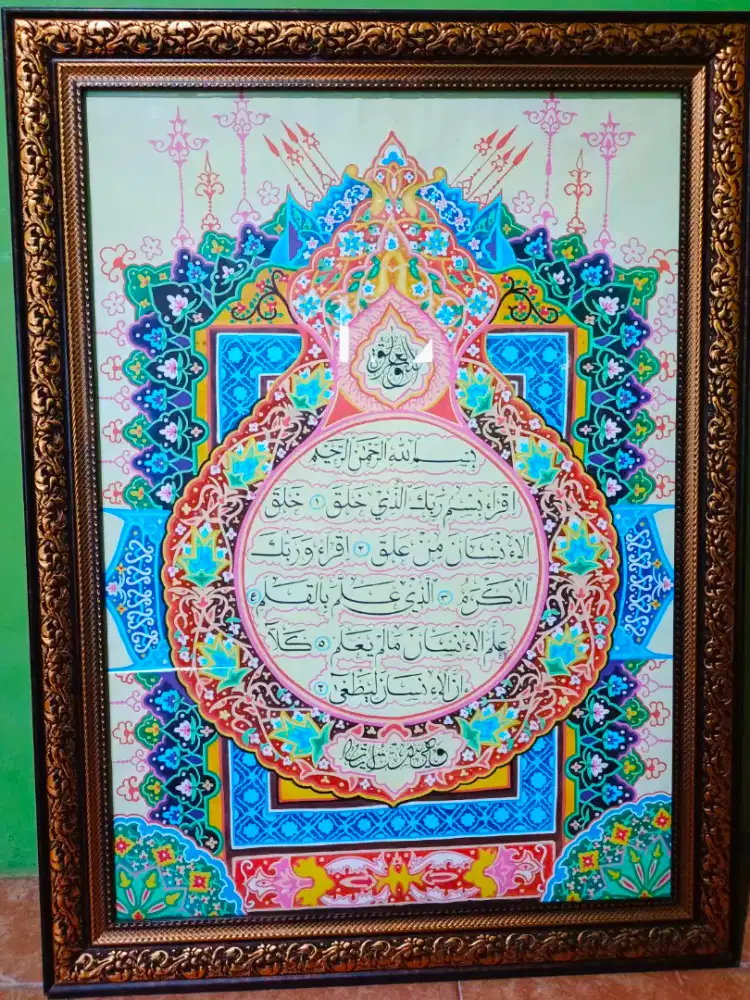 سورة العلق
بسم الله الرحمن الرحيم
اقراء بسم ربك الذي خلق ١ خلق
الاءنسان من علق ٢ اقراء وربك
الاكرم ٣ الذي علم بالقلم ٤
علم الاءنسان مالم يعلم ٥ كلآ
ان الاءنسان ليطغى ٦